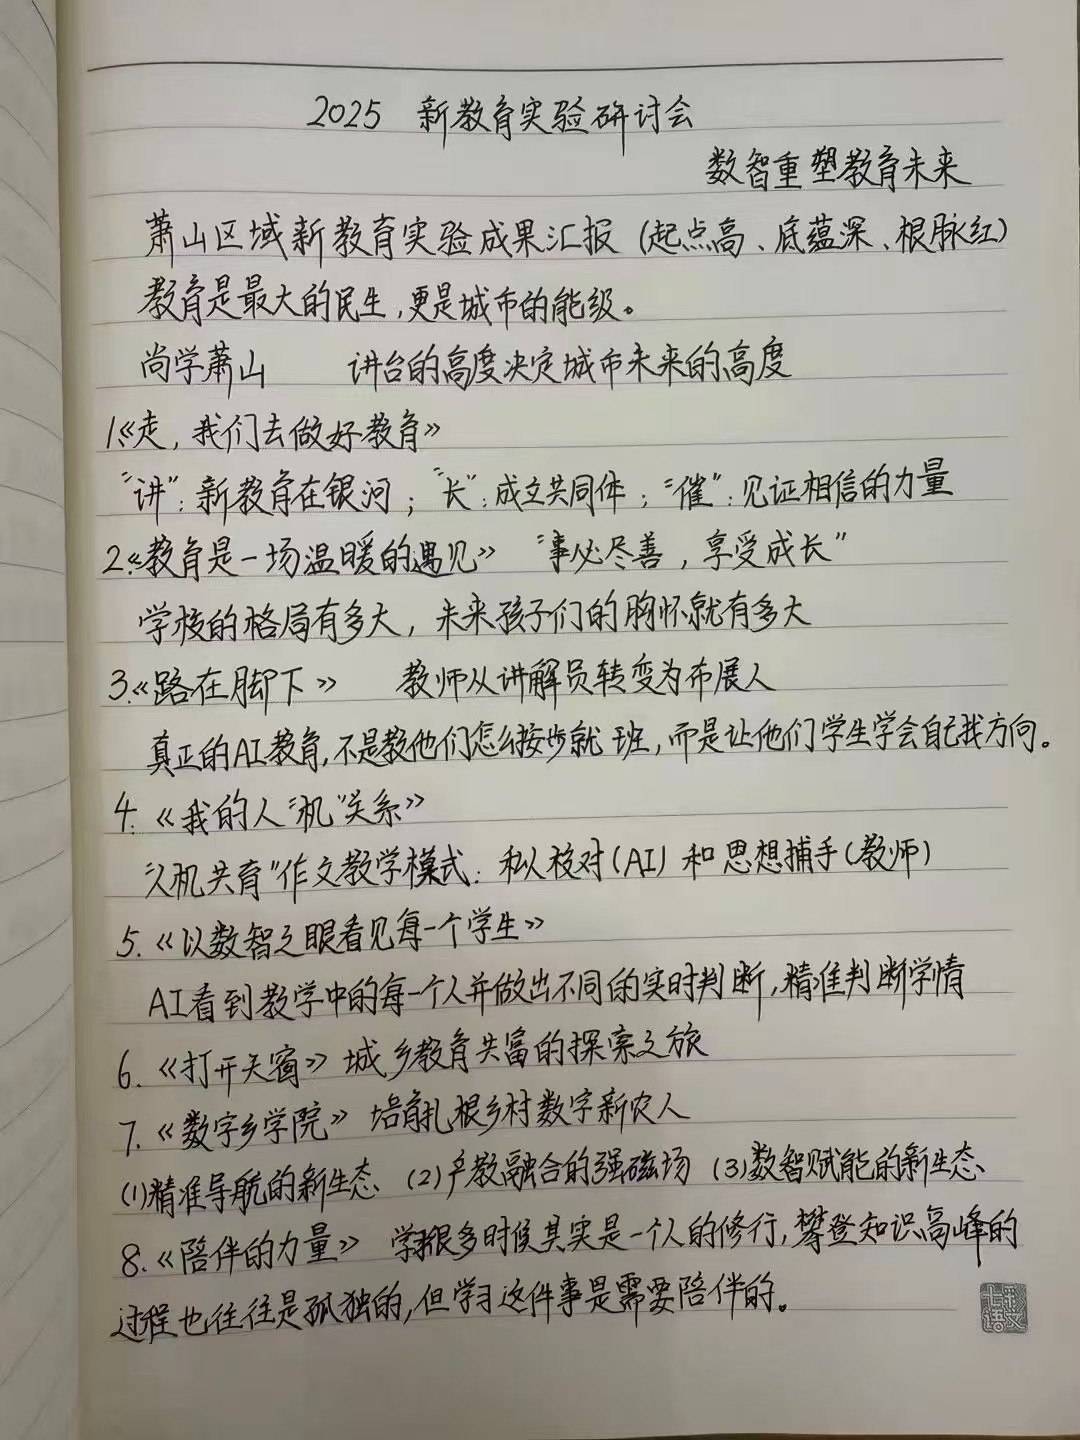 2025 新教育实验研讨会
数智重塑教育未来
萧山区域新教育实验成果汇报（起点高、底蕴深、根脉红）
教育是最大的民生，更是城市的能级。
尚学萧山 讲台的高度决定城市未来的高度
1.《走，我们去做好教育》
“讲”：新教育在银河；“长”：成立共同体；“催”：见证相信的力量
2.《教育是一场温暖的遇见》 “事必尽善，享受成长”
学校的格局有多大，未来孩子们的胸怀就有多大
3.《路在脚下》 教师从讲解员转变为布展人
真正的AI教育，不是教他们怎么按步就班，而是让他们学生学会自己找方向。
4.《我的人“机”关系》
“人机共育”作文教学模式：私人校对（AI）和思想捕手（教师）
5.《以数智之眼看见每一个学生》
AI看到教学中的每一个人并做出不同的实时判断，精准判断学情
6.《打开天窗》城乡教育共富的探索之旅
7.《数字乡学院》培育扎根乡村数字新农人
(1)精准导航的新生态、(2)产教融合的强磁场 (3)数智赋能的新生态、
8.《陪伴的力量》 学习很多时候其实是一个人的修行，攀登知识高峰的
过程也往往是孤独的，但学习这件事是需要陪伴的。
七彩语文